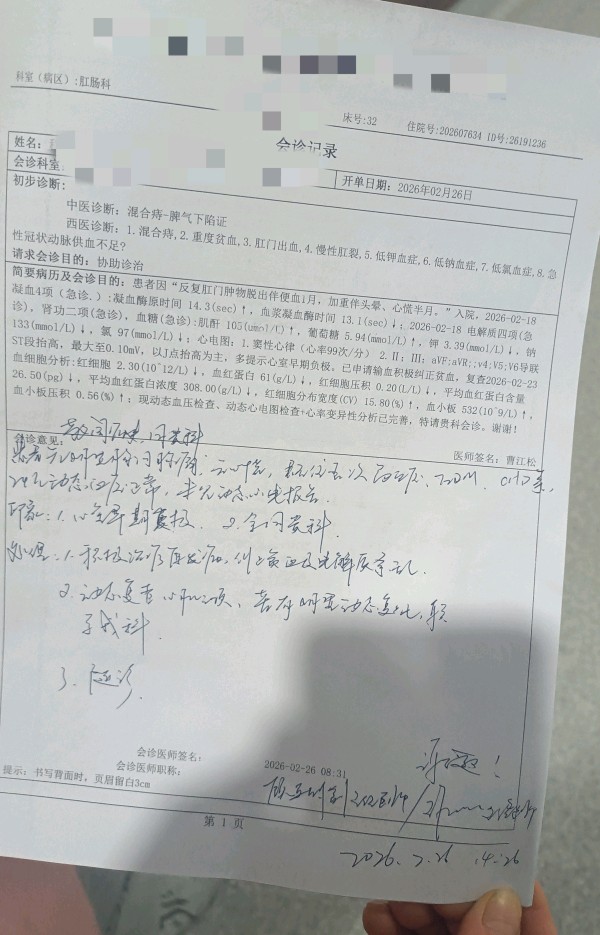 科室（病区）:肛肠科
床号:32 住院号:202607634 ID号:26191236
会诊记录
姓名:
会诊科室: 开单日期: 2026年02月26日
初步诊断:
中医诊断: 混合痔-脾气下陷证
西医诊断: 1.混合痔,2.重度贫血,3.肛门出血,4.慢性肛裂,5.低钾血症,6.低钠血症,7.低氯血症,8.急
性冠状动脉供血不足?
请求会诊目的: 协助诊治
简要病历及会诊目的: 患者因“反复肛门肿物脱出伴便血1月，加重伴头晕、心慌半月。”入院，2026-02-18
凝血4项（急诊.）:凝血酶原时间 14.3(sec)↑, 血浆凝血酶时间 13.1(sec)↓; 2026-02-18 电解质四项(急
诊)，肾功二项(急诊)，血糖(急诊):肌酐 105(umol/L)↑, 葡萄糖 5.94(mmol/L)↑, 钾 3.39(mmol/L)↓, 钠
133(mmol/L)↓, 氯 97(mmol/L)↓; 心电图: 1.窦性心律（心率99次/分）2.Ⅱ; Ⅲ; aVF;aVR;;v4;V5;V6导联
ST段抬高，最大至0.10mV, 以J点抬高为主，多提示心室早期复极。已申请输血积极纠正贫血，复查2026-02-23
血细胞分析:红细胞 2.30(10^12/L)↓, 血红蛋白 61(g/L)↓, 红细胞压积 0.20(L/L)↓, 平均血红蛋白含量
26.50(pg)↓, 平均血红蛋白浓度 308.00(g/L)↓, 红细胞分布宽度(CV) 15.80(%)↑, 血小板 532(10^9/L)↑,
血小板压积 0.56(%)↑; 现动态血压检查、动态心电图检查+心率变异性分析已完善，特请贵科会诊。谢谢!
医师签名: 曹江松
会诊意见: 敬阅病史，同贵科
印象: 1.心室早期复极. 2.余同贵科.
处理: 1.积极治疗原发病, 纠正贫血及电解质紊乱.
2.动态复查心肌三项、若有明显动态变化, 联
系我科.
3.随诊.
会诊医师签名:
会诊医师职称: 2026-02-26 08:31
提示: 书写背面时，页眉留白3cm
第 1 页
2026.2.26 14:26